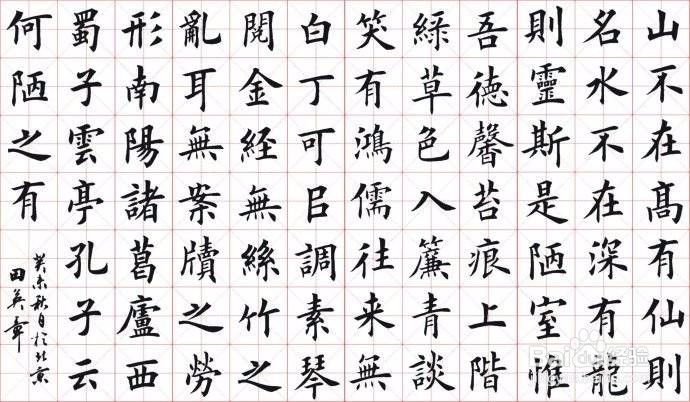 山不在髙有仙則
名水不在深有龍
則靈斯是陋室惟
吾徳馨苔痕上階
緑草色入簾青談
笑有鴻儒往来無
白丁可㠯調素琴
閲金経無絲竹之
亂耳無案牘之勞
形南陽諸葛廬西
蜀子雲亭孔子云
何陋之有
癸未秋月於北京
田英章
Baidu经验